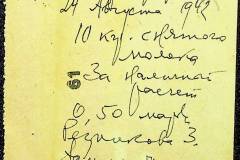 24 Августа 1942
10 кг. снятого
молока
За наличный
расчет
61
0,50 марк
Резникова З.